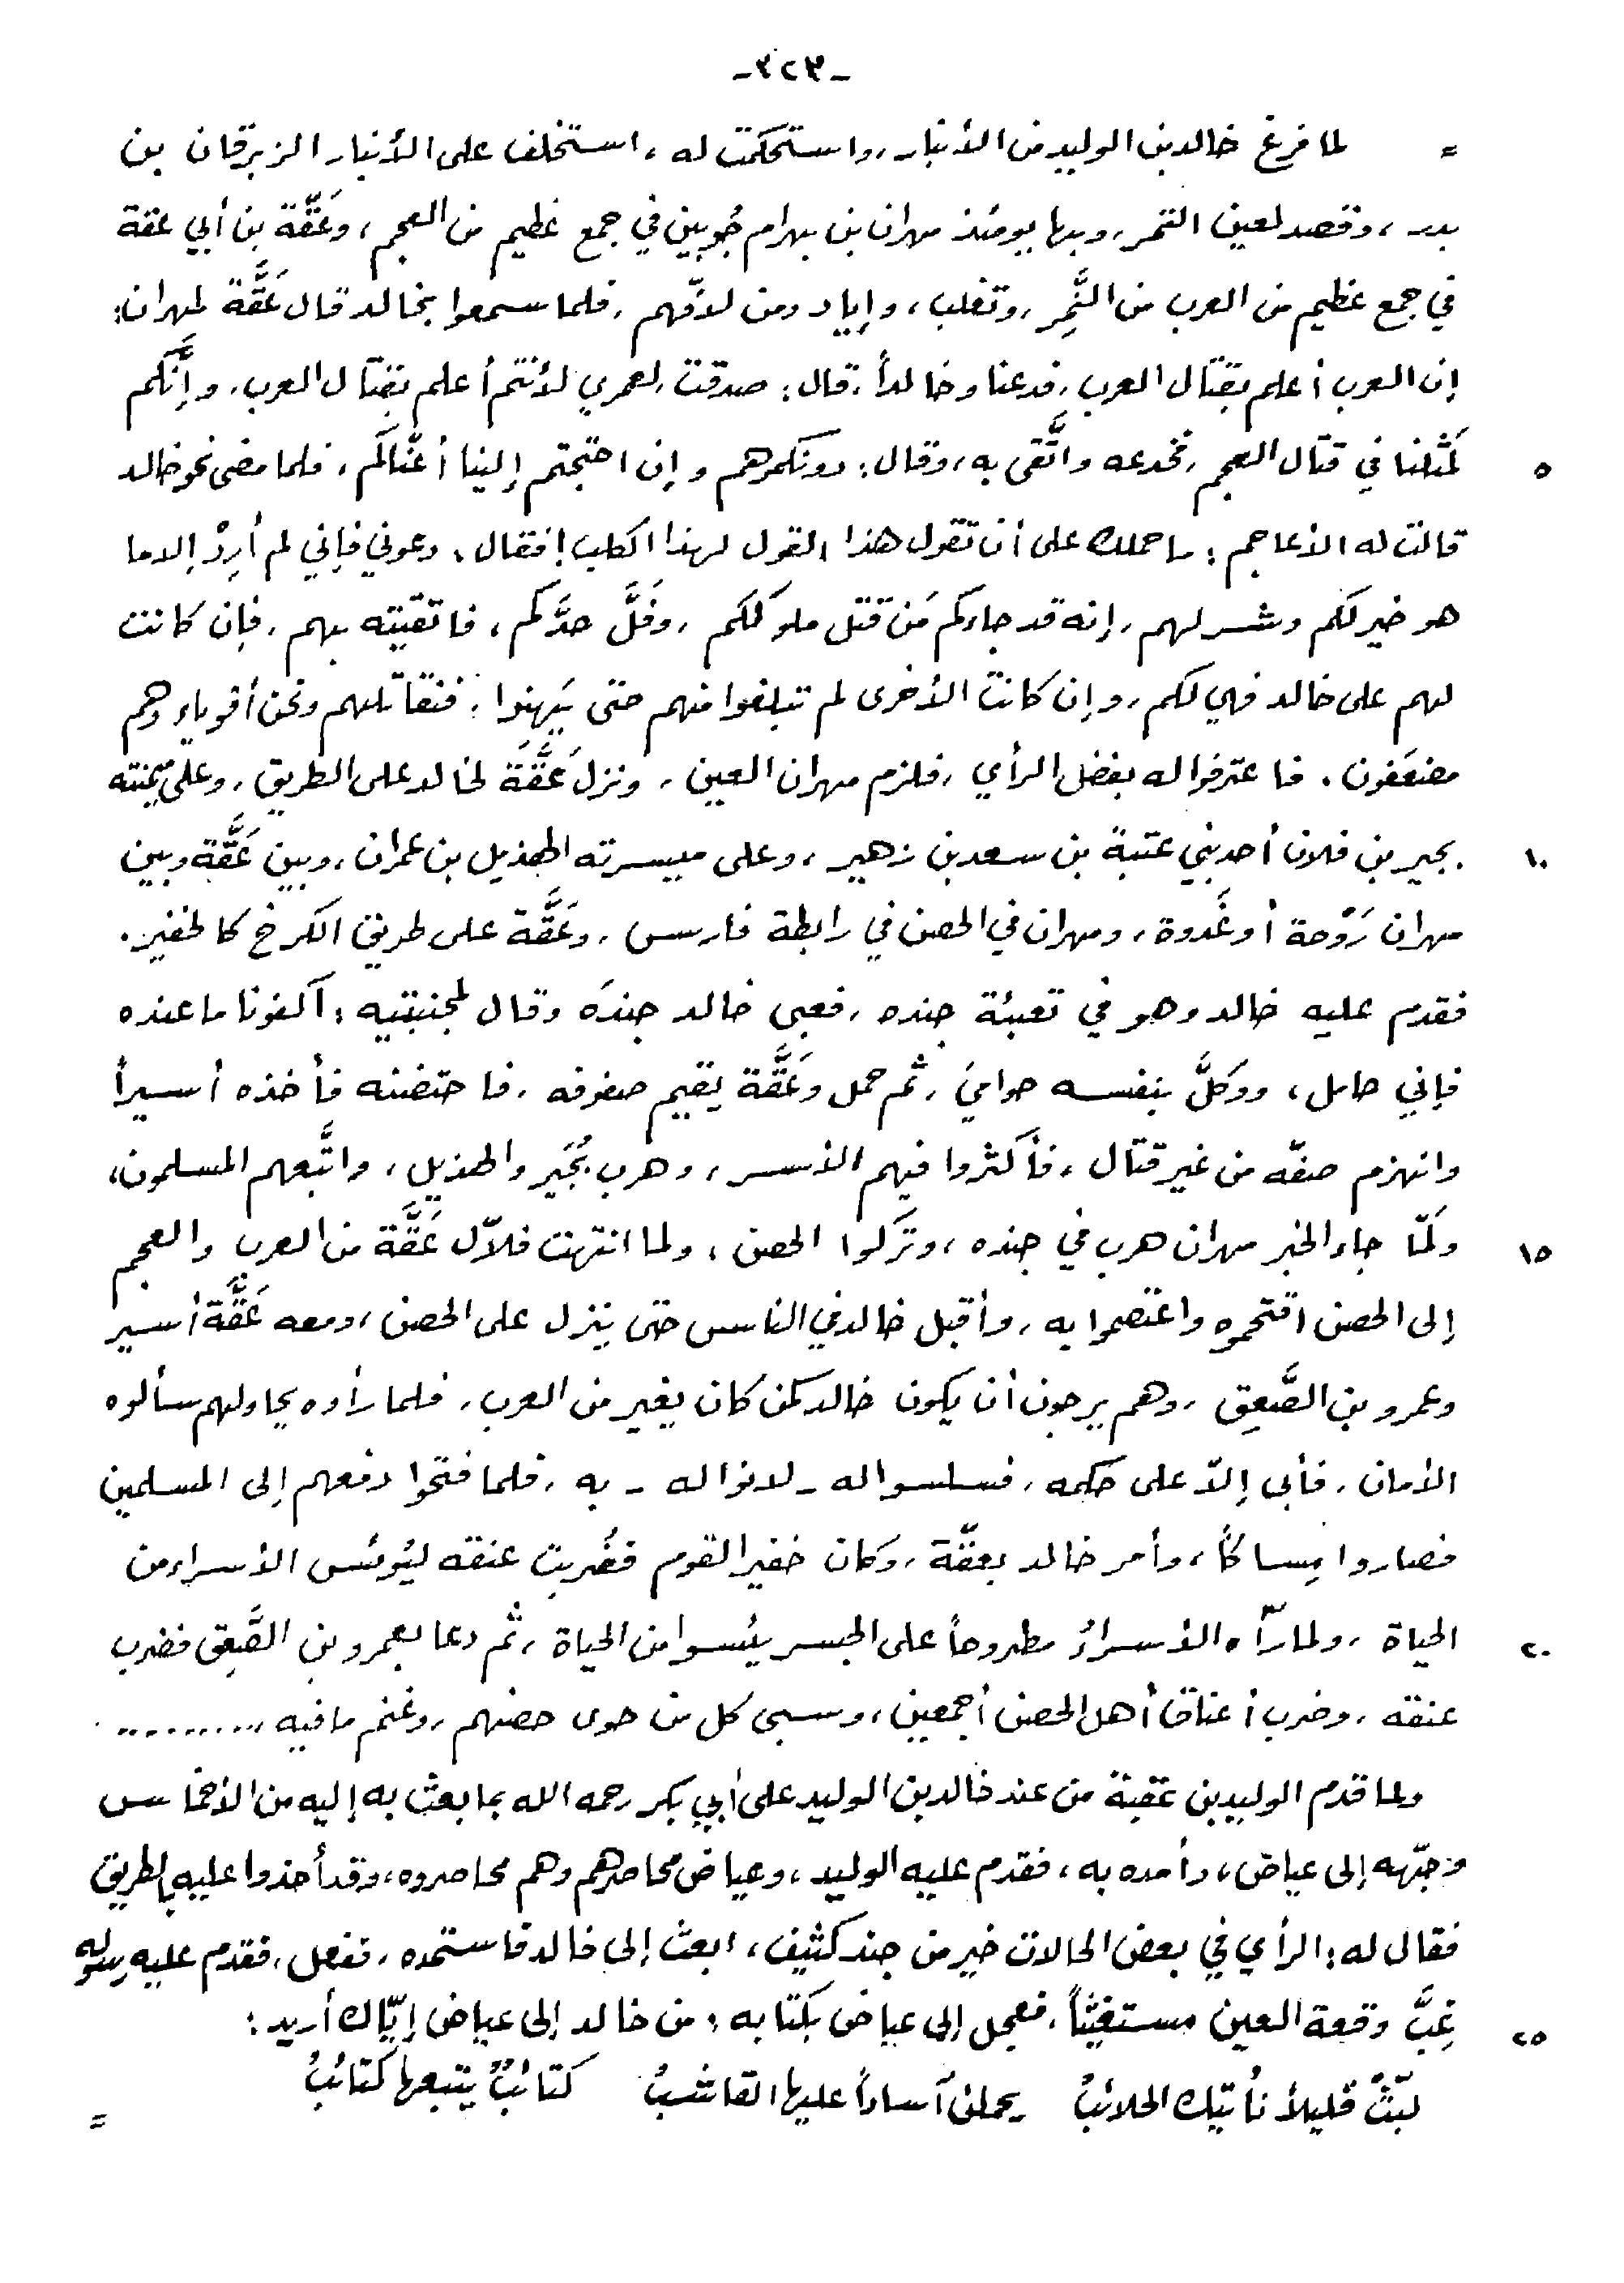 -٣٢٣-
= لما فرغ خالد بن الوليد من الأنبار، واستحكمت له، استخلف على الأنبار الزبرقان بن
بدر، وقصد لعين التمر، وبها يومئذ مهران بن بهرام جُوبين في جمع عظيم من العجم، وعَقَّة بن أبي عقة
في جمع عظيم من العرب من النَّمِر، وتغلب، وإياد ومن لافّهم، فلما سمعوا بخالد قال عَقَّة لمهران:
إن العرب أعلم بقتال العرب، فدعنا وخالداً، قال: صدقت، لعمري لأنتم أعلم بقتال العرب، وإنَّكم
٥ لمثلنا في قتال العجم، فخدعه واتَّقى به، وقال: دونكموهم وإن احتجتم إلينا أعنّاكم، فلما مضى نحو خالد
قالت له الأعاجم: ما حملك على أن تقول هذا القول لهذا الكلب! فقال: دعوني فإني لم أرِدْ إلا ما
هو خير لكم وشر لهم، إنه قد جاءكم مَن قتل ملوككم، وفَلَّ حدَّكم، فاتقيته بهم، فإن كانت
لهم على خالد فهي لكم، وإن كانت الأخرى لم تبلغوا منهم حتى يَهِنوا، فنقاتلهم ونحن أقوياء وهم
مضعَفون. فاعترفوا له بفضل الرأي، فلزم مهران العين، ونزل عَقَّة لخالد على الطريق، وعلى ميمنته
١٠ بجير بن فلان أحد بني عتبة بن سعد بن زهير، وعلى ميسرته الهذيل بن عمران، وبين عَقَّة وبين
مهران رَوْحة أو غَدوة، ومهران في الحصن في رابطة فارس، وعَقَّة على طريق الكرخ كالخفير.
فقدم عليه خالد وهو في تعبئة جنده، فعبى خالد جندَه وقال لمجنبتيه: اكفونا ما عنده
فإني حامل، ووكلَّ بنفسه حواميَ، ثم حمل وعَقَّة يقيم صفوفه، فاحتضنه فأخذه أسيراً
وانهزم صفّه من غير قتال، فأكثروا فيهم الأسر، وهرب بُجَير والهذيل، واتَّبعهم المسلمون،
١٥ ولمّا جاء الخبر مهران هرب في جنده، وتركوا الحصن، ولما انتهت فلاّل عَقَّة من العرب والعجم
إلى الحصن اقتحموه واعتصموا به، وأقبل خالد في الناس حتى ينزل على الحصن، ومعه عَقَّة أسير
وعمرو بن الصَّعِق، وهم يرجون أن يكون خالد كمن كان يغير من العرب، فلما رأوه يحاولهم سألوه
الأمان، فأبى إلاّ على حكمه، فسلسوا له - لانوا له - به، فلما فتحوا دفعهم إلى المسلمين
فصاروا مِساكاً، وأمر خالد بعقّة، وكان خفير القوم فضُربت عنقه ليُوئس الأسراء من
٢٠ الحياة، ولما رآه الأسراءُ مطروحاً على الجسر يئسوا من الحياة، ثم دعا بعمرو بن الصَّعِق فضرب
عنقه، وضرب أعناق أهل الحصن أجمعين، وسبى كل من حوى حصنهم، وغنم ما فيه، ..........
ولما قدم الوليد بن عقبة من عند خالد بن الوليد على أبي بكر رحمه الله بما بعث به إليه من الأخماس
وجّهه إلى عياض، وأمده به، فقدم عليه الوليد، وعياض محاصرهم وهم محاصروه، وقد أخذوا عليه بالطريق
فقال له: الرأي في بعض الحالات خير من جند كثيف، ابعث إلى خالد فاستمده، ففعل، فقدم عليه رسوله
٢٥ غِبَّ وقعة العين مستغيثاً، فعجل إلى عياض بكتابه: من خالد إلى عياض إيّاك أريد:
لَبّثْ قليلاً تأتيك الحلائبُ يحملن آساداً عليها القاشبُ كتائبٌ يتبعها كتائبُ
=